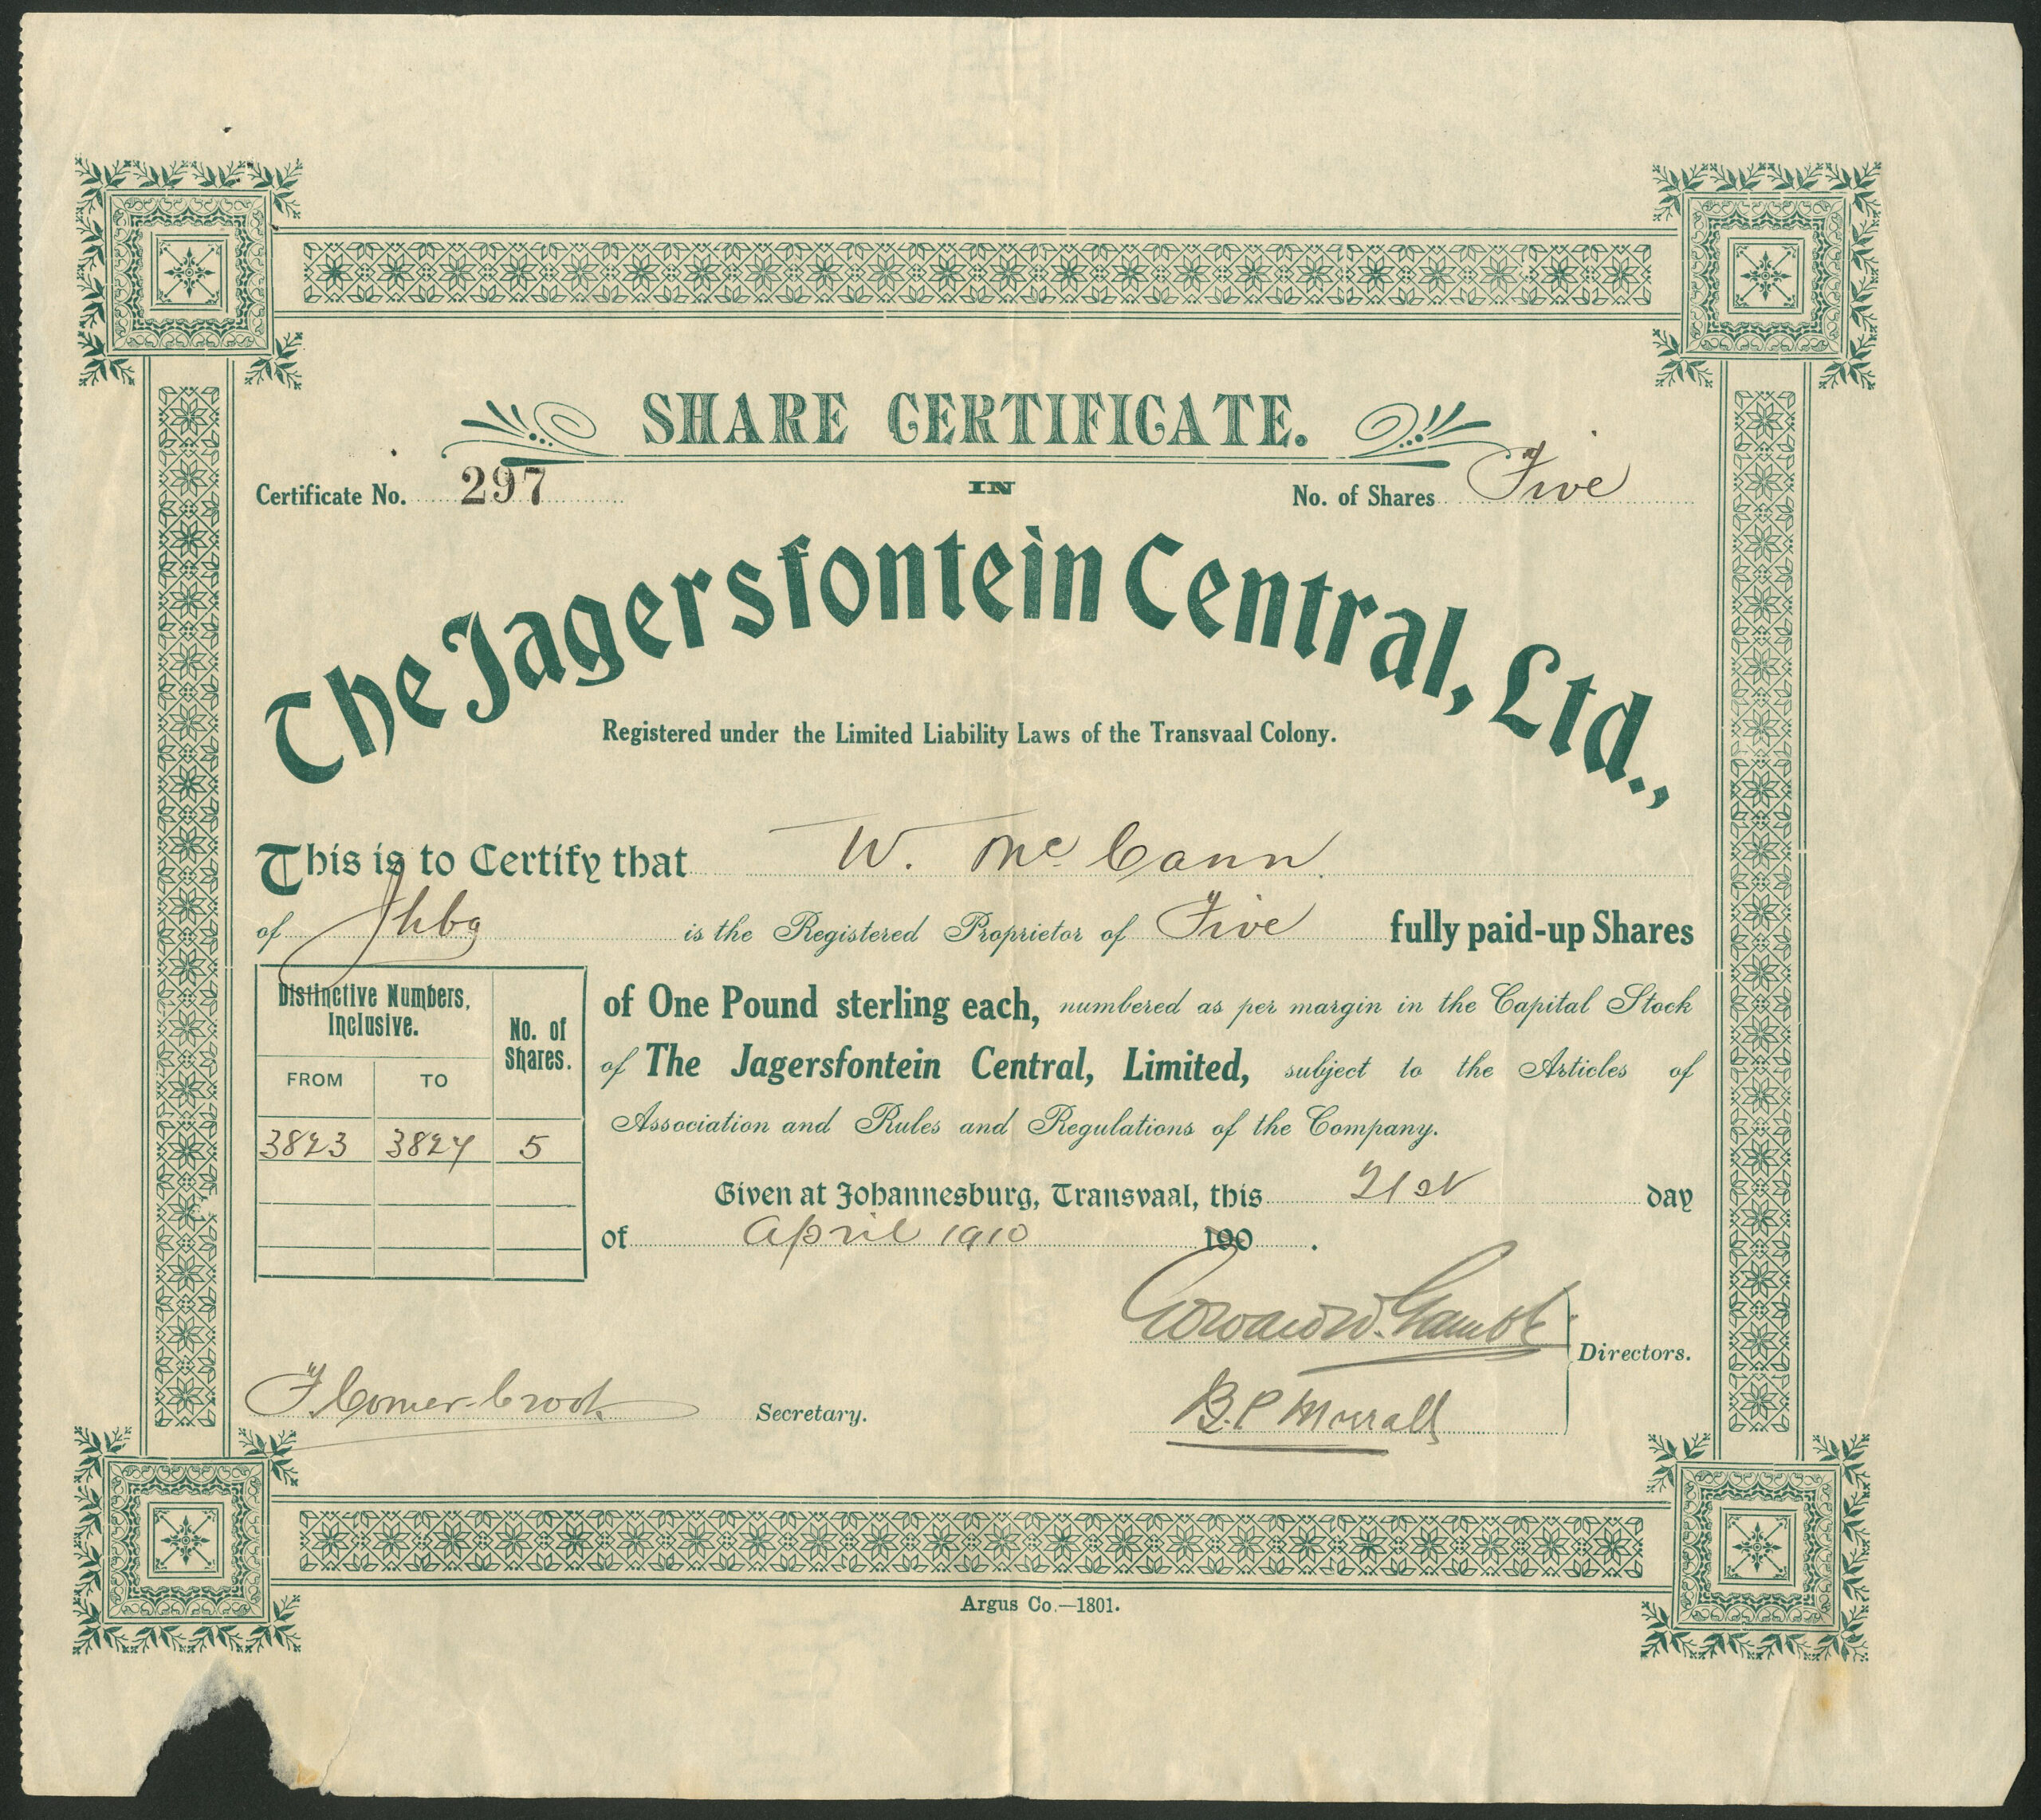 SHARE CERTIFICATE.
Certificate No. 297 IN No. of Shares Five
The Jagersfontein Central, Ltd.,
Registered under the Limited Liability Laws of the Transvaal Colony.
This is to Certify that W. McCann.
of Jhbg is the Registered Proprietor of Five fully paid-up Shares
of One Pound sterling each, numbered as per margin in the Capital Stock
of The Jagersfontein Central, Limited, subject to the Articles of
Association and Rules and Regulations of the Company.
Distinctive Numbers, Inclusive. No. of Shares.
FROM TO
3823 3827 5
Given at Johannesburg, Transvaal, this 21st day
of April 1910 190 .
Edward Gamble
Directors.
Secretary.
B.P.
Argus Co.—1801.